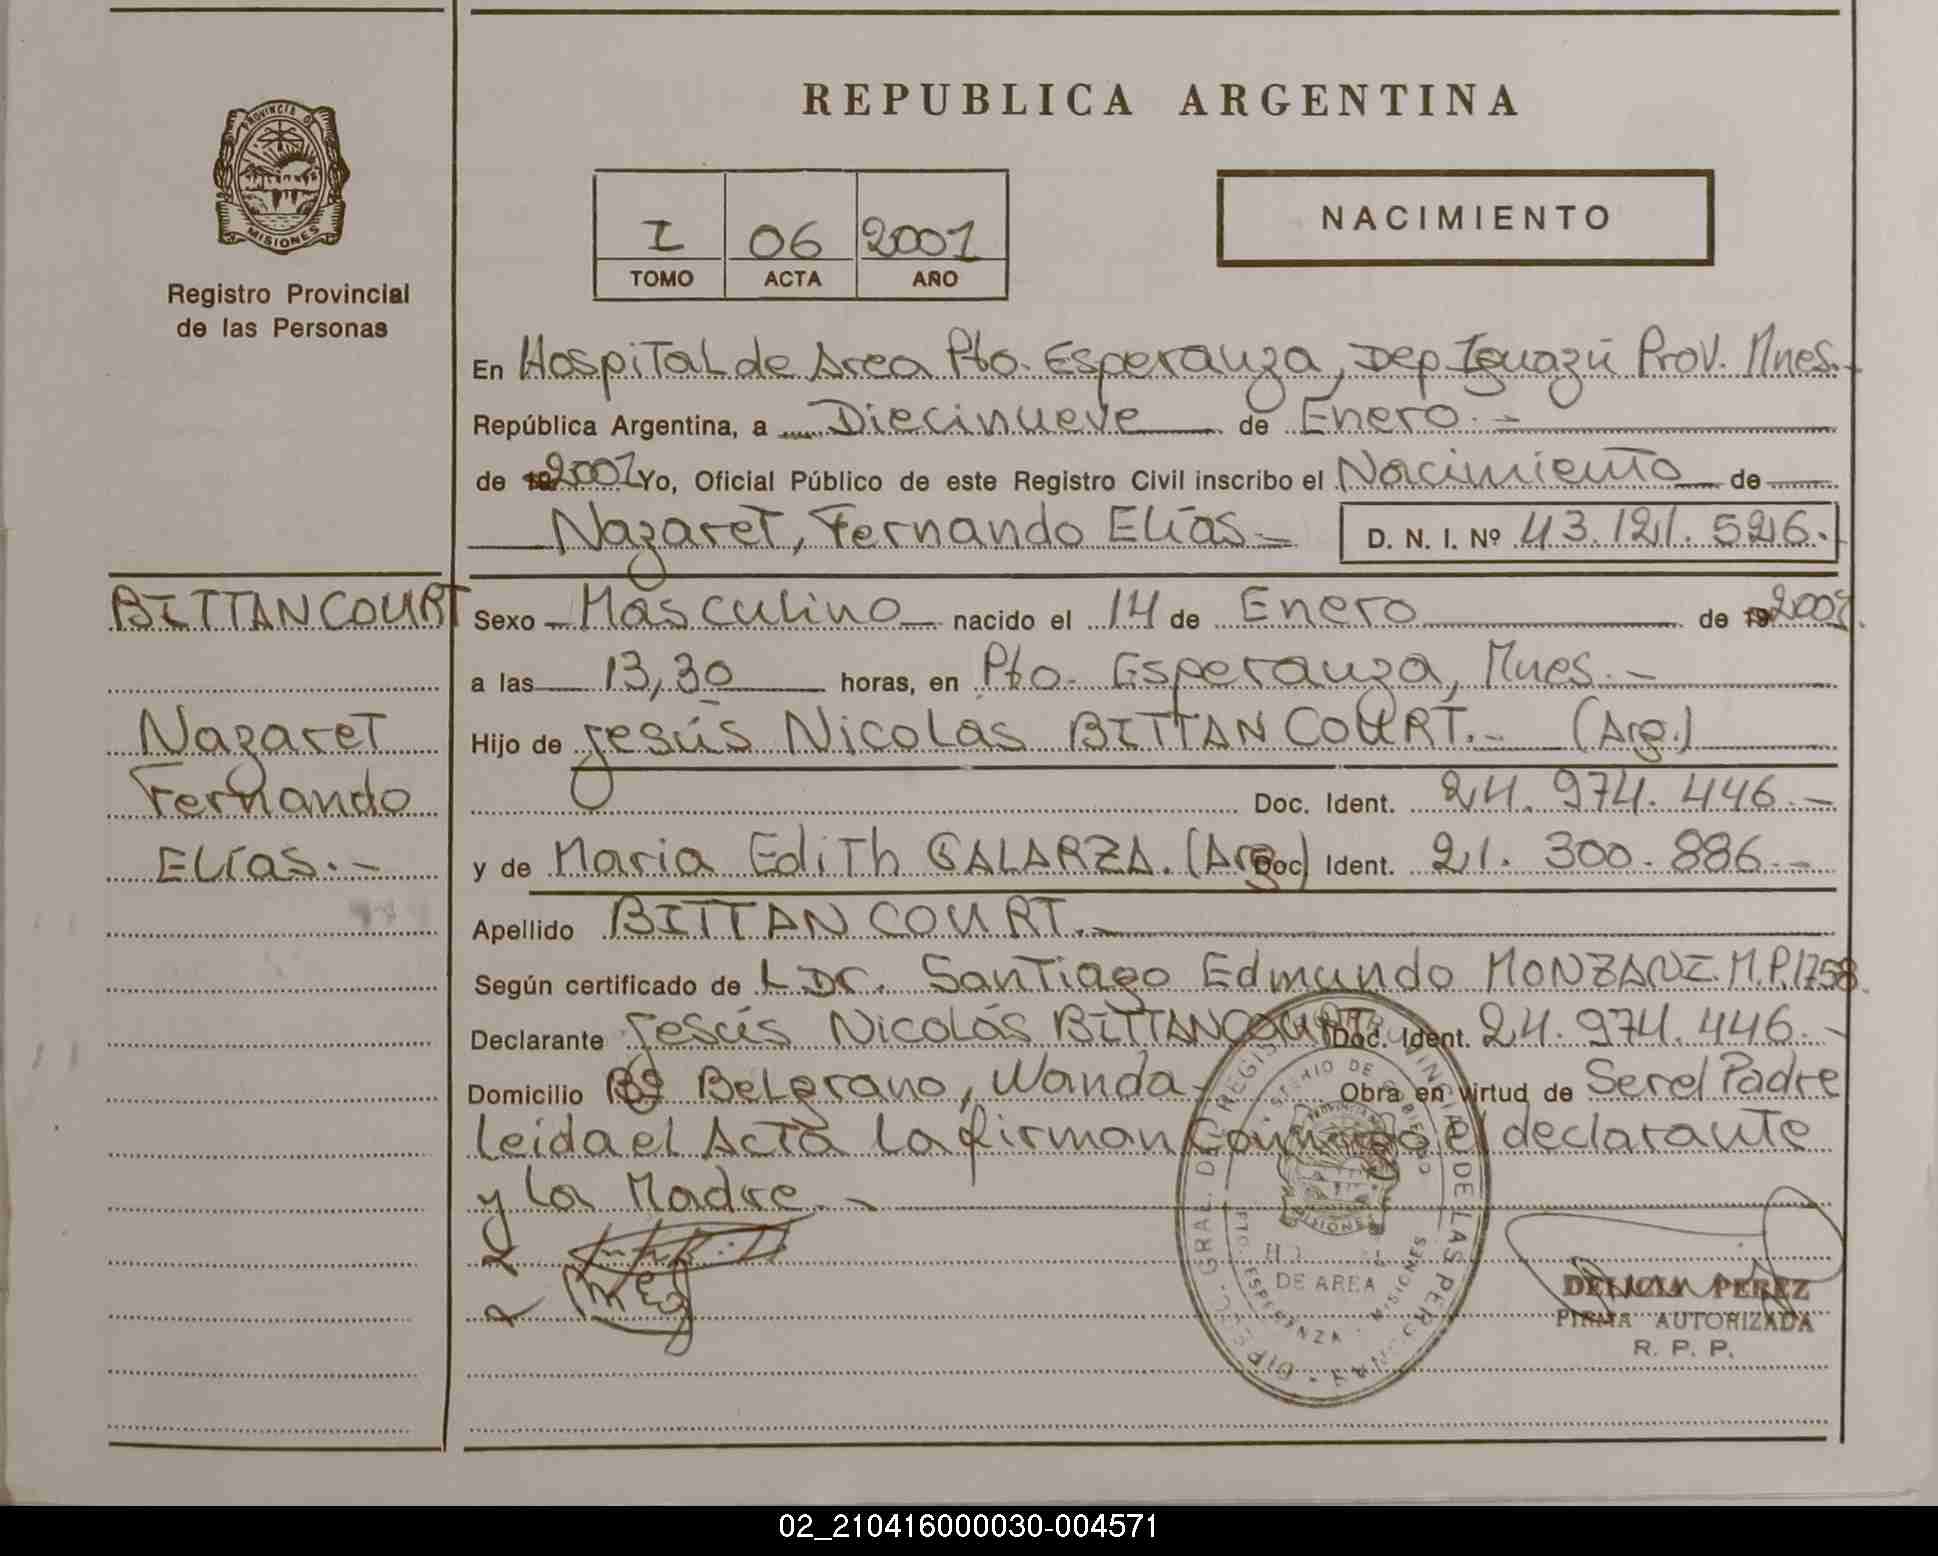 REPUBLICA ARGENTINA
PROVINCIA DE
MISIONES
Registro Provincial
de las Personas
I 06 2001
TOMO ACTA AÑO
NACIMIENTO
En Hospital de Area Pto. Esperanza, Dep Iguazú Prov. Mnes.-
República Argentina, a Diecinueve de Enero.-
de 2001 Yo, Oficial Público de este Registro Civil inscribo el Nacimiento de
Nazaret, Fernando Elías- D. N. I. Nº 43.121.526.-
BITTANCOURT
Nazaret
Fernando
Elías.-
Sexo Masculino nacido el 14 de Enero de 2001.
a las 13,30 horas, en Pto. Esperanza, Mnes.-
Hijo de Jesús Nicolás BITTANCOURT.- (Arg.)
Doc. Ident. 24.974.446.-
y de Maria Edith GALARZA. (Arg) Doc. Ident. 21.300.886.-
Apellido BITTANCOURT.-
Según certificado de Dr. Santiago Edmundo MONZANI. M.P.1758.
Declarante Jesús Nicolás BITTANCOURT Doc. Ident. 24.974.446.-
Domicilio Bº Belgrano, Wanda- Obra en virtud de Ser el Padre
Leida el Acta la firman Conmigo el declarante
y la Madre.-
DE AREA
ESPERANZA - MISIONES
DELICIA PEREZ
FIRMA AUTORIZADA
R. P. P.
02_210416000030-004571